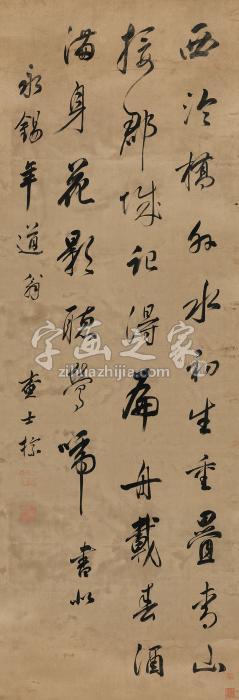 西泠橋外水初生重疊青山
接郡城記得扁舟載春酒
滿身花影聽鶯啼 書似
永錫年道翁
查士標
字画之家
zihuazhijia.com